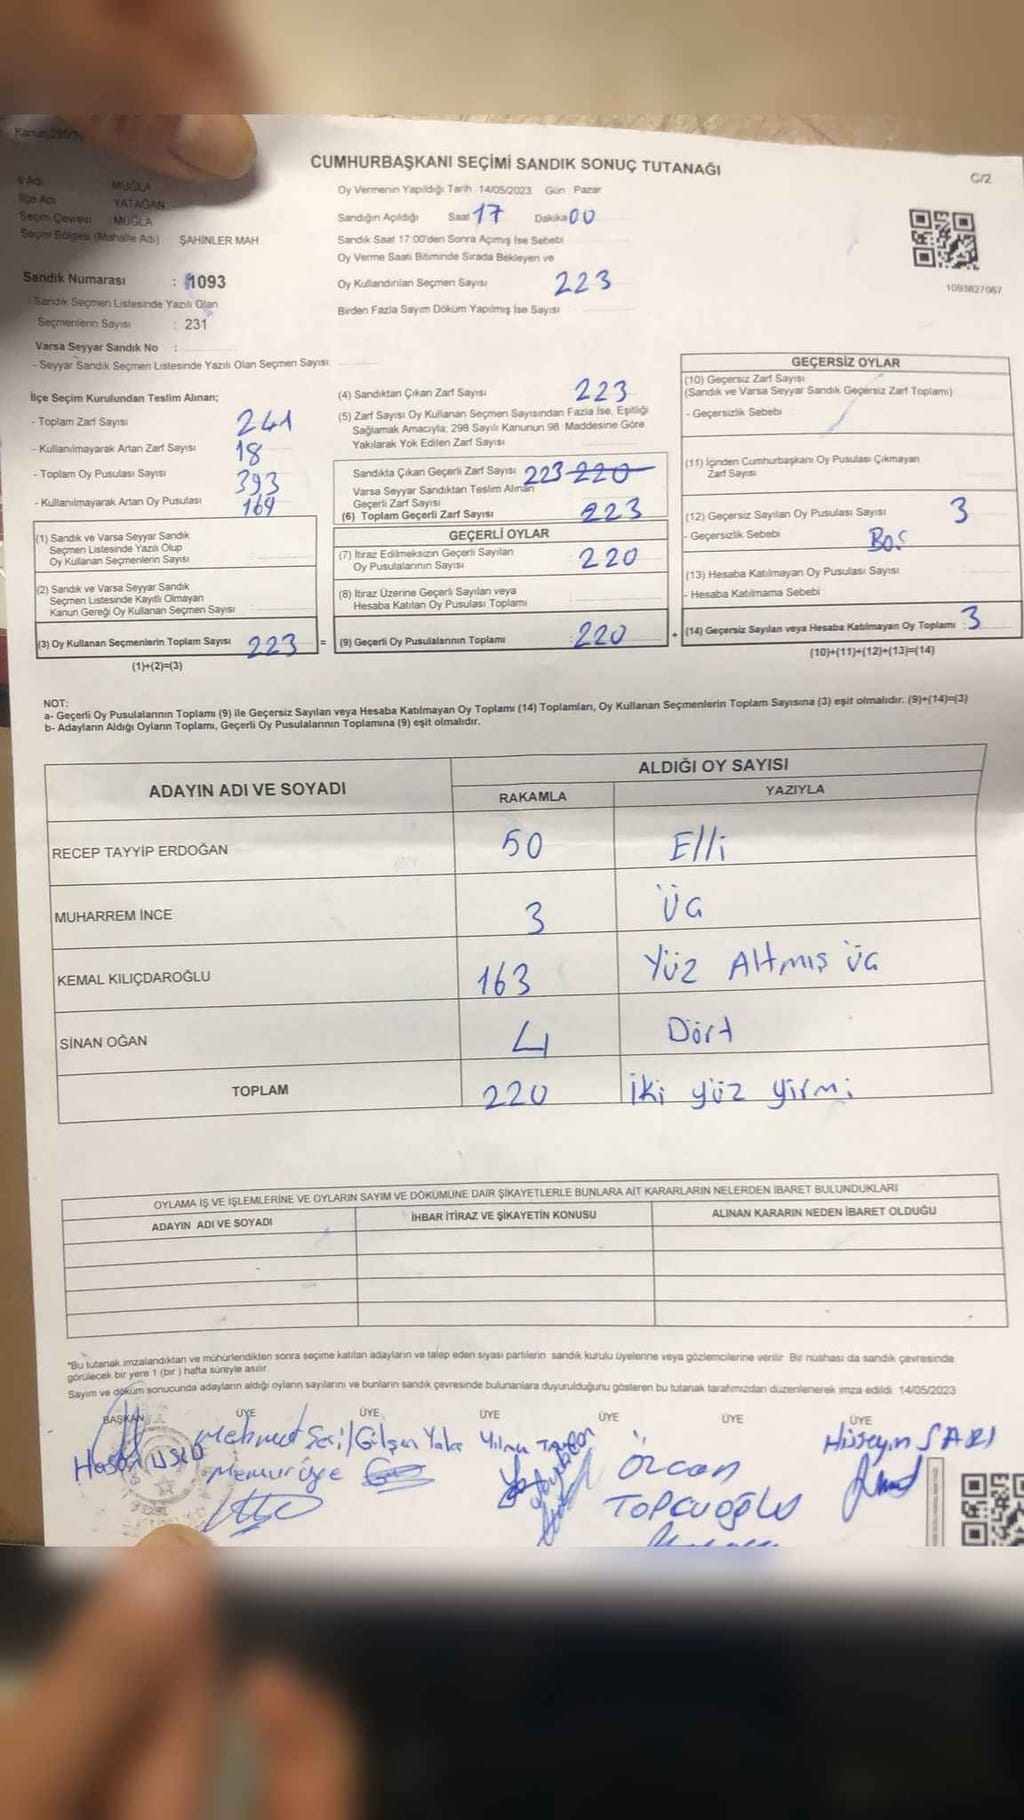 CUMHURBAŞKANI SEÇİMİ SANDIK SONUÇ TUTANAĞI
C/2
İl Adı MUĞLA
İlçe Adı YATAĞAN
Seçim Çevresi : MUĞLA
Seçim Bölgesi (Mahalle Adı) ŞAHİNLER MAH
Sandık Numarası : 1093
- Sandık Seçmen Listesinde Yazılı Olan
Seçmenlerin Sayısı : 231
Varsa Seyyar Sandık No :
- Seyyar Sandık Seçmen Listesinde Yazılı Olan Seçmen Sayısı
Oy Vermenin Yapıldığı Tarih 14/05/2023 Gün Pazar
Sandığın Açıldığı Saat 17 Dakika 00
Sandık Saat 17:00'den Sonra Açımış İse Sebebi
Oy Verme Saati Bitiminde Sırada Bekleyen ve
Oy Kullandırılan Seçmen Sayısı 223
Birden Fazla Sayım Döküm Yapılmış İse Sayısı
1093627067
İlçe Seçim Kurulundan Teslim Alınan;
- Toplam Zarf Sayısı 241
- Kullanılmayarak Artan Zarf Sayısı 18
- Toplam Oy Pusulası Sayısı 393
- Kullanılmayarak Artan Oy Pusulası 169
(1) Sandık ve Varsa Seyyar Sandık
Seçmen Listesinde Yazılı Olup
Oy Kullanan Seçmenlerin Sayısı
(2) Sandık ve Varsa Seyyar Sandık
Seçmen Listesinde Kayıtlı Olmayan
Kanun Gereği Oy Kullanan Seçmen Sayısı
(3) Oy Kullanan Seçmenlerin Toplam Sayısı 223 =
(1)+(2)=(3)
(4) Sandıktan Çıkan Zarf Sayısı 223
(5) Zarf Sayısı Oy Kullanan Seçmen Sayısından Fazla İse, Eşitliği
Sağlamak Amacıyla; 298 Sayılı Kanunun 98. Maddesine Göre
Yakılarak Yok Edilen Zarf Sayısı
Sandıkta Çıkan Geçerli Zarf Sayısı 223 220
Varsa Seyyar Sandıktan Teslim Alınan
Geçerli Zarf Sayısı
(6) Toplam Geçerli Zarf Sayısı 223
GEÇERLİ OYLAR
(7) İtiraz Edilmeksizin Geçerli Sayılan
Oy Pusulalarının Sayısı 220
(8) İtiraz Üzerine Geçerli Sayılan veya
Hesaba Katılan Oy Pusulası Toplamı
(9) Geçerli Oy Pusulalarının Toplamı 220 +
GEÇERSİZ OYLAR
(10) Geçersiz Zarf Sayısı
(Sandık ve Varsa Seyyar Sandık Geçersiz Zarf Toplamı)
- Geçersizlik Sebebi
(11) İçinden Cumhurbaşkanı Oy Pusulası Çıkmayan
Zarf Sayısı
(12) Geçersiz Sayılan Oy Pusulası Sayısı 3
- Geçersizlik Sebebi Boş
(13) Hesaba Katılmayan Oy Pusulası Sayısı
- Hesaba Katılmama Sebebi
(14) Geçersiz Sayılan veya Hesaba Katılmayan Oy Toplamı 3
(10)+(11)+(12)+(13)=(14)
NOT:
a- Geçerli Oy Pusulalarının Toplamı (9) ile Geçersiz Sayılan veya Hesaba Katılmayan Oy Toplamı (14) Toplamları, Oy Kullanan Seçmenlerin Toplam Sayısına (3) eşit olmalıdır. (9)+(14)=(3)
b- Adayların Aldığı Oyların Toplamı, Geçerli Oy Pusulalarının Toplamına (9) eşit olmalıdır.
ADAYIN ADI VE SOYADI ALDIĞI OY SAYISI
RAKAMLA YAZIYLA
RECEP TAYYİP ERDOĞAN 50 Elli
MUHARREM İNCE 3 Üç
KEMAL KILIÇDAROĞLU 163 Yüz Altmış üç
SİNAN OĞAN 4 Dört
TOPLAM 220 İki yüz yirmi
OYLAMA İŞ VE İŞLEMLERİNE VE OYLARIN SAYIM VE DÖKÜMÜNE DAİR ŞİKAYETLERLE BUNLARA AİT KARARLARIN NELERDEN İBARET BULUNDUKLARI
ADAYIN ADI VE SOYADI İHBAR İTİRAZ VE ŞİKAYETİN KONUSU ALINAN KARARIN NEDEN İBARET OLDUĞU
*Bu tutanak imzalandıktan ve mühürlendikten sonra seçime katılan adayların ve talep eden siyasi partilerin sandık kurulu üyelerine veya gözlemcilerine verilir. Bir nüshası da sandık çevresinde
görülecek bir yere 1 (bir) hafta süreyle asılır.
Sayım ve döküm sonucunda adayların aldığı oyların sayılarını ve bunların sandık çevresinde bulunanlara duyurulduğunu gösteren bu tutanak tarafımızdan düzenlenerek imza edildi. 14/05/2023
BAŞKAN ÜYE ÜYE ÜYE ÜYE ÜYE ÜYE
Mehmet Gülşen Özcan Hüseyin SARI
Memur üye TOPCUOĞLU